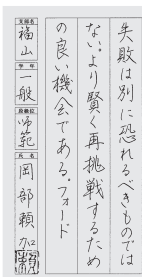 失敗は別に恐れるべきものでは
ない。より賢く再挑戦するため
の良い機会である。フォード
支部名 福山 学年 一般 段級位 師範 氏名 岡部頼加